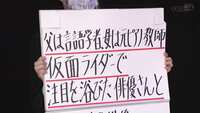 父は言語学者、妻は元ピアノ教師
仮面ライダーで
注目を浴びた、俳優さんと